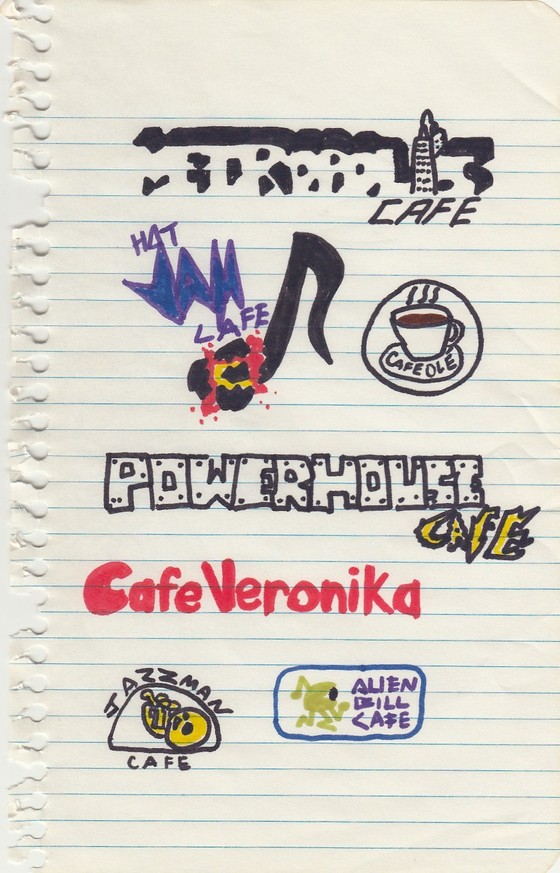 CAFE
HAT
JAM
CAFE
CAFE OLÉ
POWERHOUSE
CAFE
Cafe Veronika
JAZZMAN
CAFE
ALIEN
BILL
CAFE